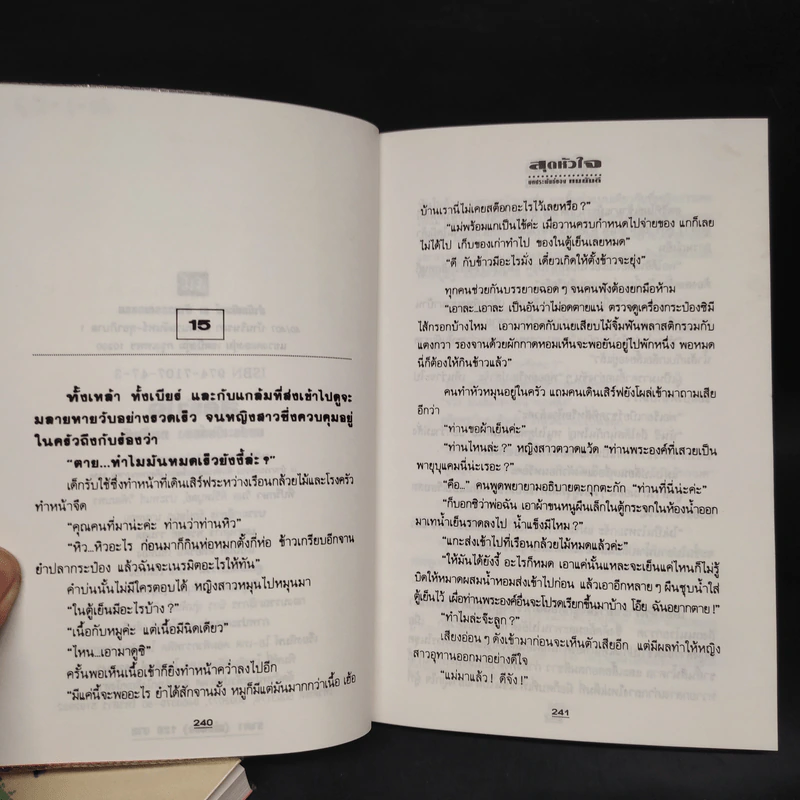 15
ทั้งเหล้า ทั้งเบียร์ และกับแกล้มที่ส่งเข้าไปดูจะ
มลายหายวับอย่างรวดเร็ว จนหญิงสาวซึ่งควบคุมอยู่
ในครัวถึงกับร้องว่า
“ตาย...ทำไมมันหมดเร็วยังงี้ล่ะ?”
เด็กรับใช้ซึ่งทำหน้าที่เดินเสิร์ฟระหว่างเรือนกล้วยไม้และโรงครัว
ทำหน้าจืด
“คุณคนที่มาน่ะค่ะ ท่านว่าท่านหิว”
“หิว...หิวอะไร ก่อนมาก็กินห่อหมกตั้งกี่ห่อ ข้าวเกรียบอีกจาน
ยำปลากระป๋อง แล้วฉันจะเนรมิตอะไรให้ทัน”
คำบ่นนั้นไม่มีใครตอบได้ หญิงสาวหมุนไปหมุนมา
“ในตู้เย็นมีอะไรบ้าง?”
“เนื้อกับหมูค่ะ แต่เนื้อมีนิดเดียว”
“ไหน...เอามาดูซิ”
ครั้นพอเห็นเนื้อเข้าก็ยิ่งทำหน้าคว่ำลงไปอีก
“มีแค่นี้จะพออะไร ยำได้สักจานมั้ง หมูก็มีแต่มันมากกว่าเนื้อ เฮ้อ
240
สุดหัวใจ
บทประพันธ์ของ ทมยันตี
บ้านเรานี่ไม่เคยสต๊อกอะไรไว้เลยหรือ?”
“แม่พร้อมแกเป็นไข้ค่ะ เมื่อวานครบกำหนดไปจ่ายของ แกก็เลย
ไม่ได้ไป เก็บของเก่าทำไป ของในตู้เย็นเลยหมด”
“ดี กับข้าวมีอะไรมั่ง เดี๋ยวเกิดให้ตั้งข้าวจะยุ่ง”
ทุกคนช่วยกันบรรยายฉอด ๆ จนคนฟังต้องยกมือห้าม
“เอาละ...เอาละ เป็นอันว่าไม่อดตายแน่ ตรวจดูเครื่องกระป๋องซิมี
ไส้กรอกบ้างไหม เอามาทอดกับเนยเสียบไม้จิ้มฟันพลาสติกรวมกับ
แตงกวา รองจานด้วยผักกาดหอมเห็นจะพอยันอยู่ไปพักหนึ่ง พอหมด
นี่ก็ต้องให้กินข้าวแล้ว”
คนทำหัวหมุนอยู่ในครัว แถมคนเดินเสิร์ฟยังโผล่เข้ามาถามเสีย
อีกว่า
“ท่านขอผ้าเย็นค่ะ”
“ท่านไหนล่ะ?” หญิงสาวตวาดแว้ด “ท่านพระองค์ที่เสวยเป็น
พายุบุแคมนี่น่ะเรอะ?”
“คือ...” คนพูดพยายามอธิบายตะกุกตะกัก “ท่านที่นี่น่ะค่ะ”
“ก็บอกซิว่าพ่อฉัน เอาผ้าขนหนูผืนเล็กในตู้กระจกในห้องน้ำออก
มาเทน้ำเย็นราดลงไป น้ำแข็งมีไหม?”
“แกะส่งเข้าไปที่เรือนกล้วยไม้หมดแล้วค่ะ”
“ให้มันได้ยังงี้ อะไรก็หมด เอาแค่นั้นแหละจะเย็นแค่ไหนก็ไม่รู้
บิดให้หมาดผสมน้ำหอมส่งเข้าไปก่อน แล้วเอาอีกหลาย ๆ ผืนชุบน้ำใส่
ตู้เย็นไว้ เผื่อท่านพระองค์อื่นจะโปรดเรียกขึ้นมาบ้าง โอ๊ย ฉันอยากตาย!”
“ทำไมล่ะจ๊ะลูก?”
เสียงอ่อน ๆ ดังเข้ามาก่อนจะเห็นตัวเสียอีก แต่มีผลทำให้หญิง
สาวอุทานออกมาอย่างดีใจ
“แม่มาแล้ว! ดีจัง!”
241